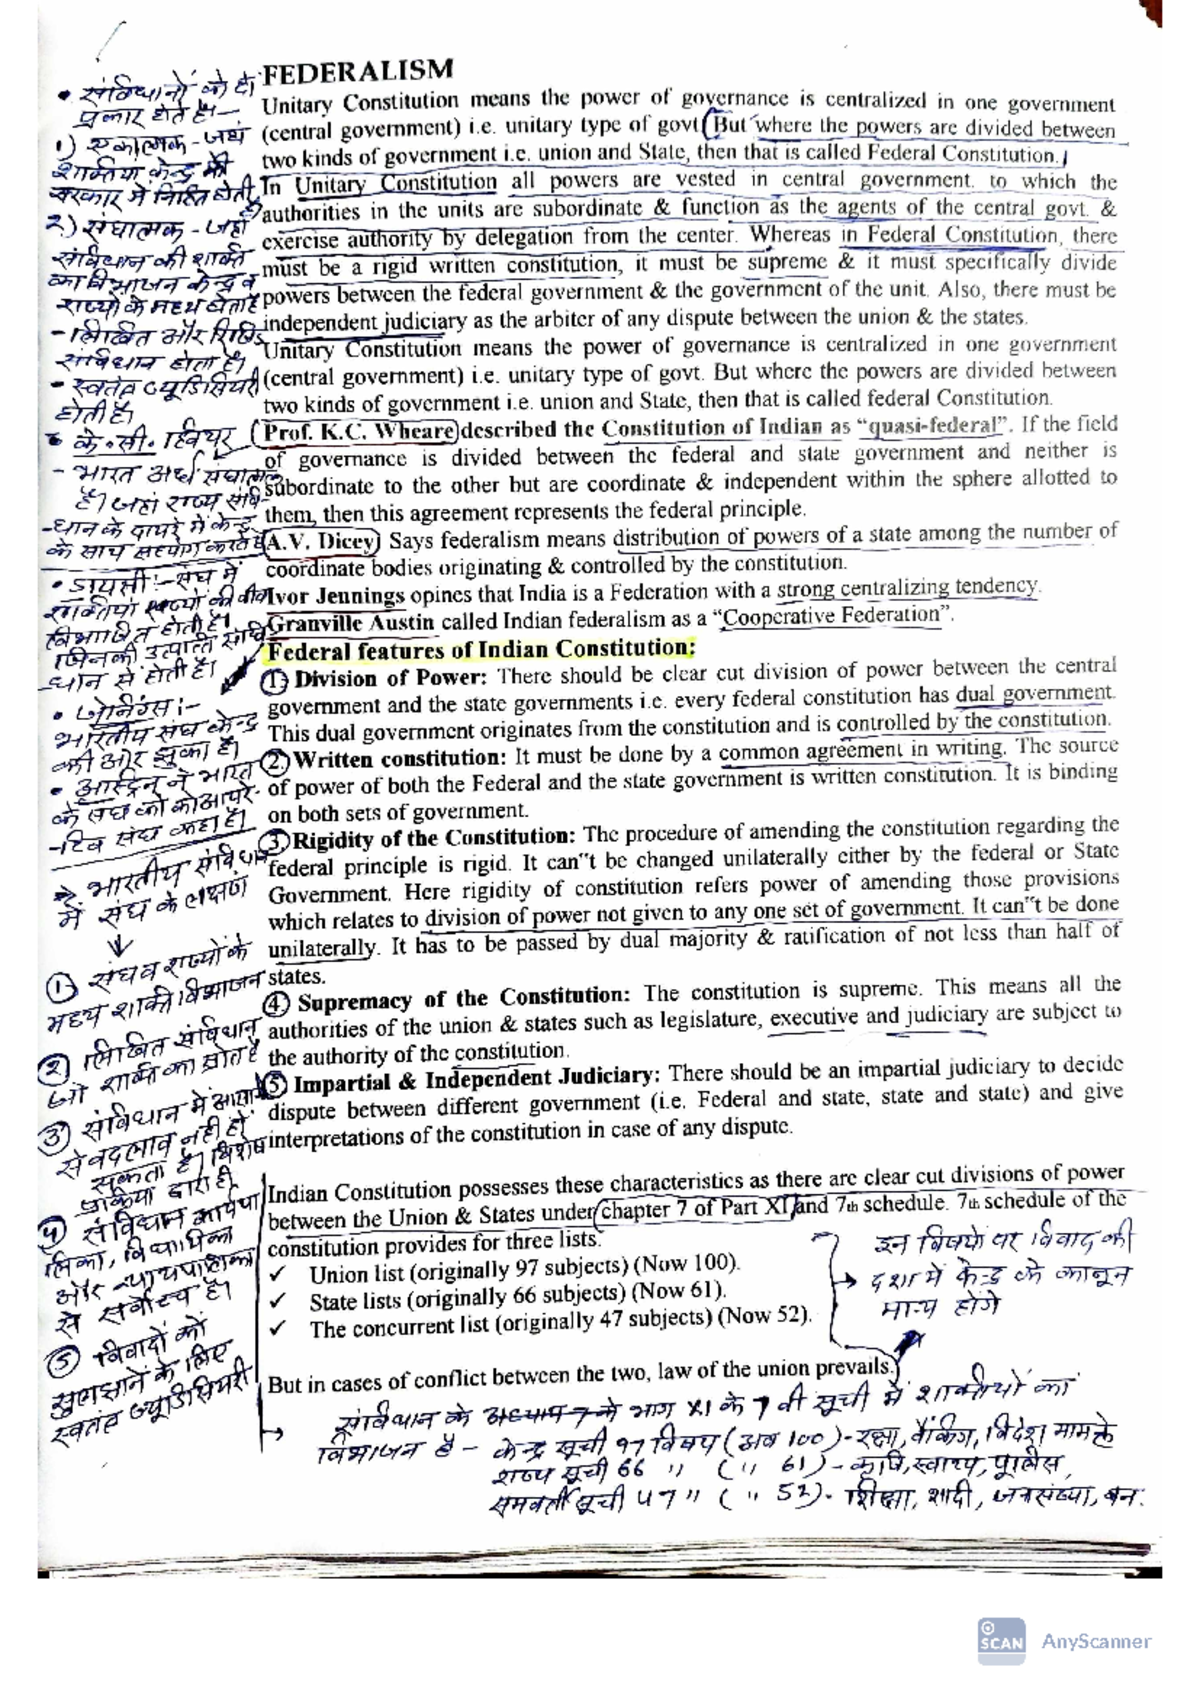 FEDERALISM
Unitary Constitution means the power of governance is centralized in one government
(central government) i.e. unitary type of govt. But where the powers are divided between
two kinds of government i.e. union and State, then that is called Federal Constitution.
In Unitary Constitution all powers are vested in central government. to which the
authorities in the units are subordinate & function as the agents of the central govt. &
exercise authority by delegation from the center. Whereas in Federal Constitution, there
must be a rigid written constitution, it must be supreme & it must specifically divide
powers between the federal government & the government of the unit. Also, there must be
independent judiciary as the arbiter of any dispute between the union & the states.
Unitary Constitution means the power of governance is centralized in one government
(central government) i.e. unitary type of govt. But where the powers are divided between
two kinds of government i.e. union and State, then that is called federal Constitution.
Prof. K.C. Wheare described the Constitution of Indian as “quasi-federal”. If the field
of governance is divided between the federal and state government and neither is
subordinate to the other but are coordinate & independent within the sphere allotted to
them, then this agreement represents the federal principle.
A.V. Dicey Says federalism means distribution of powers of a state among the number of
coordinate bodies originating & controlled by the constitution.
Ivor Jennings opines that India is a Federation with a strong centralizing tendency.
Granville Austin called Indian federalism as a “Cooperative Federation”.
Federal features of Indian Constitution:
1 Division of Power: There should be clear cut division of power between the central
government and the state governments i.e. every federal constitution has dual government.
This dual government originates from the constitution and is controlled by the constitution.
2 Written constitution: It must be done by a common agreement in writing. The source
of power of both the Federal and the state government is written constitution. It is binding
on both sets of government.
3 Rigidity of the Constitution: The procedure of amending the constitution regarding the
federal principle is rigid. It can"t be changed unilaterally either by the federal or State
Government. Here rigidity of constitution refers power of amending those provisions
which relates to division of power not given to any one set of government. It can"t be done
unilaterally. It has to be passed by dual majority & ratification of not less than half of
states.
4 Supremacy of the Constitution: The constitution is supreme. This means all the
authorities of the union & states such as legislature, executive and judiciary are subject to
the authority of the constitution.
5 Impartial & Independent Judiciary: There should be an impartial judiciary to decide
dispute between different government (i.e. Federal and state, state and state) and give
interpretations of the constitution in case of any dispute.
Indian Constitution possesses these characteristics as there are clear cut divisions of power
between the Union & States under chapter 7 of Part XI and 7th schedule. 7th schedule of the
constitution provides for three lists:
✓ Union list (originally 97 subjects) (Now 100).
✓ State lists (originally 66 subjects) (Now 61).
✓ The concurrent list (originally 47 subjects) (Now 52).
But in cases of conflict between the two, law of the union prevails.
इन विषयों पर विवाद की
दशा में केन्द्र के कानून
मान्य होंगे
संविधान के भाग XI के 7 वी सूची में शक्तियों का
विभाजन है - केन्द्र सूची 97 विषय (अब 100) - रक्षा, बैंकिंग, विदेश मामले
राज्य सूची 66 " (" 61) - कृषि, स्वास्थ्य, पुलिस,
समवर्ती सूची 47 " (" 52) - शिक्षा, शादी, जनसंख्या, वन.
• संविधानों के दो
प्रकार होते हैं -
1) एकात्मक - जहां
शक्तियां केन्द्र की
सरकार में निहित होती
2) संघात्मक - जहां
संविधान की शक्ति
का विभाजन केन्द्र व
राज्यों के मध्य होता है
- लिखित और रिजिड
संविधान होता है।
- स्वतंत्र ज्यूडिसियरी
होती है।
• के. सी. हवियर
- भारत अर्ध संघात्मक
है। जहां राज्य संवि-
-धान के दायरे में केन्द्र
के साथ सहयोग करते हैं
• डायसी :- संघ में
शक्तियां राज्यों की बीच
विभाजित होती है।
जिनकी उत्पत्ति संवि
-धान से होती है।
• जेनिंग्स :-
भारतीय संघ केन्द्र
की ओर झुका है
• आस्टिन ने भारत
के संघ को कोआपरे-
-टिव संघ कहा है।
भारतीय संविधान
में संघ के लक्षण
1 संघ व राज्यों के
मध्य शक्ति विभाजन
2 लिखित संविधान
जो शक्ति का स्रोत है
3 संविधान में आसानी
से बदलाव नही हो
सकता है। विशेष
प्रक्रिया द्वारा ही
4 संविधान कार्यपा
लिका, विधायिका
और न्यायपालिका
से सर्वोच्च है।
5 विवादों को
सुलझाने के लिए
स्वतंत्र ज्यूडिसियरी
SCAN AnyScanner